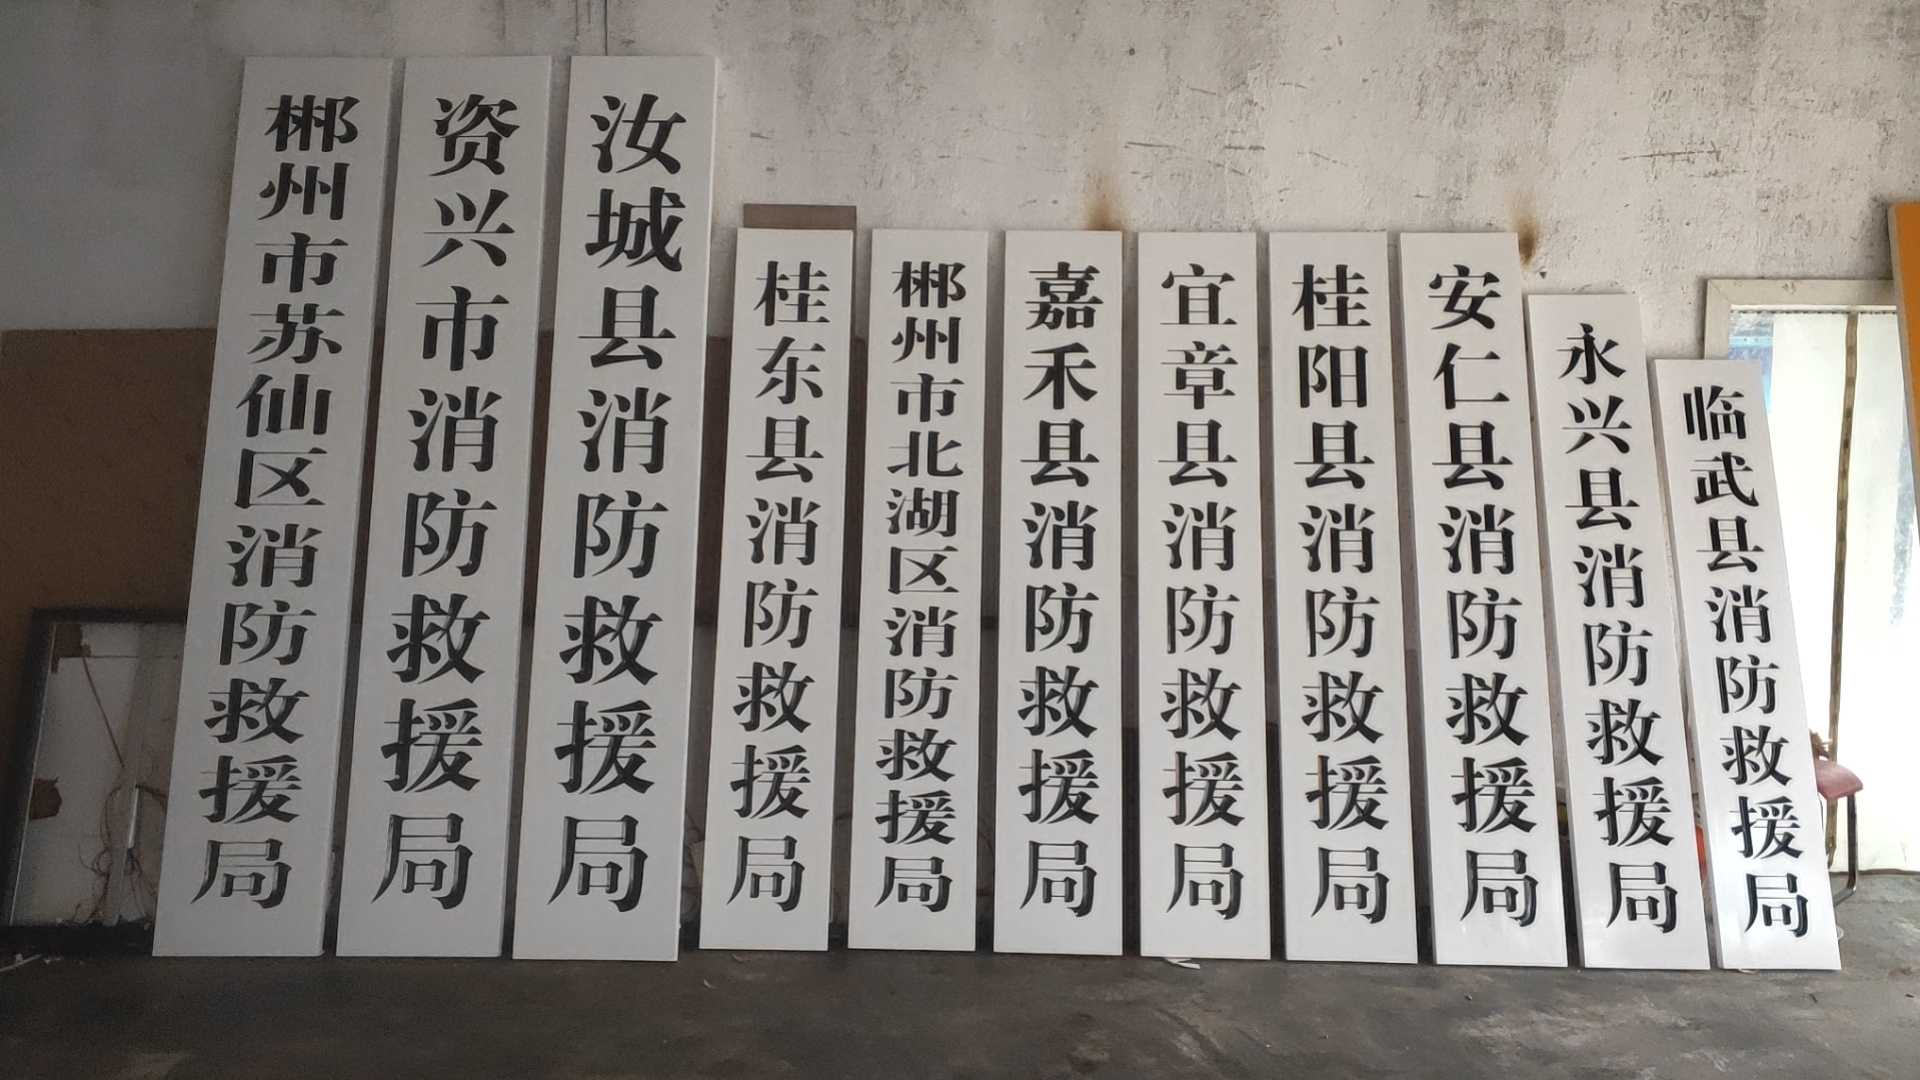 郴州市苏仙区消防救援局
资兴市消防救援局
汝城县消防救援局
桂东县消防救援局
郴州市北湖区消防救援局
嘉禾县消防救援局
宜章县消防救援局
桂阳县消防救援局
安仁县消防救援局
永兴县消防救援局
临武县消防救援局